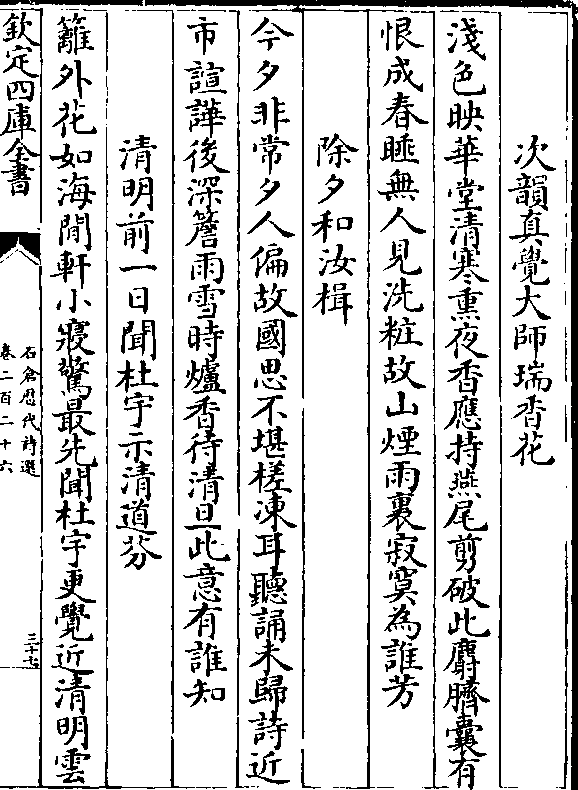 次韻真覺大師瑞香花
淺色映華堂清寒熏夜香應持燕尾剪破此麝臍囊有
恨成春睡無人見洗粧故山煙雨裏寂寞為誰芳
除夕和汝楫
今夕非常夕人偏故國思不堪槎凍耳聽誦未歸詩近
市諠譁後深簷雨雪時爐香待清旦此意有誰知
清明前一日聞杜宇示清道芬
籬外花如海閒軒小寢驚最先聞杜宇更覺近清明雲
欽定四庫全書
石倉歷代詩選
卷二百二十六
三十七